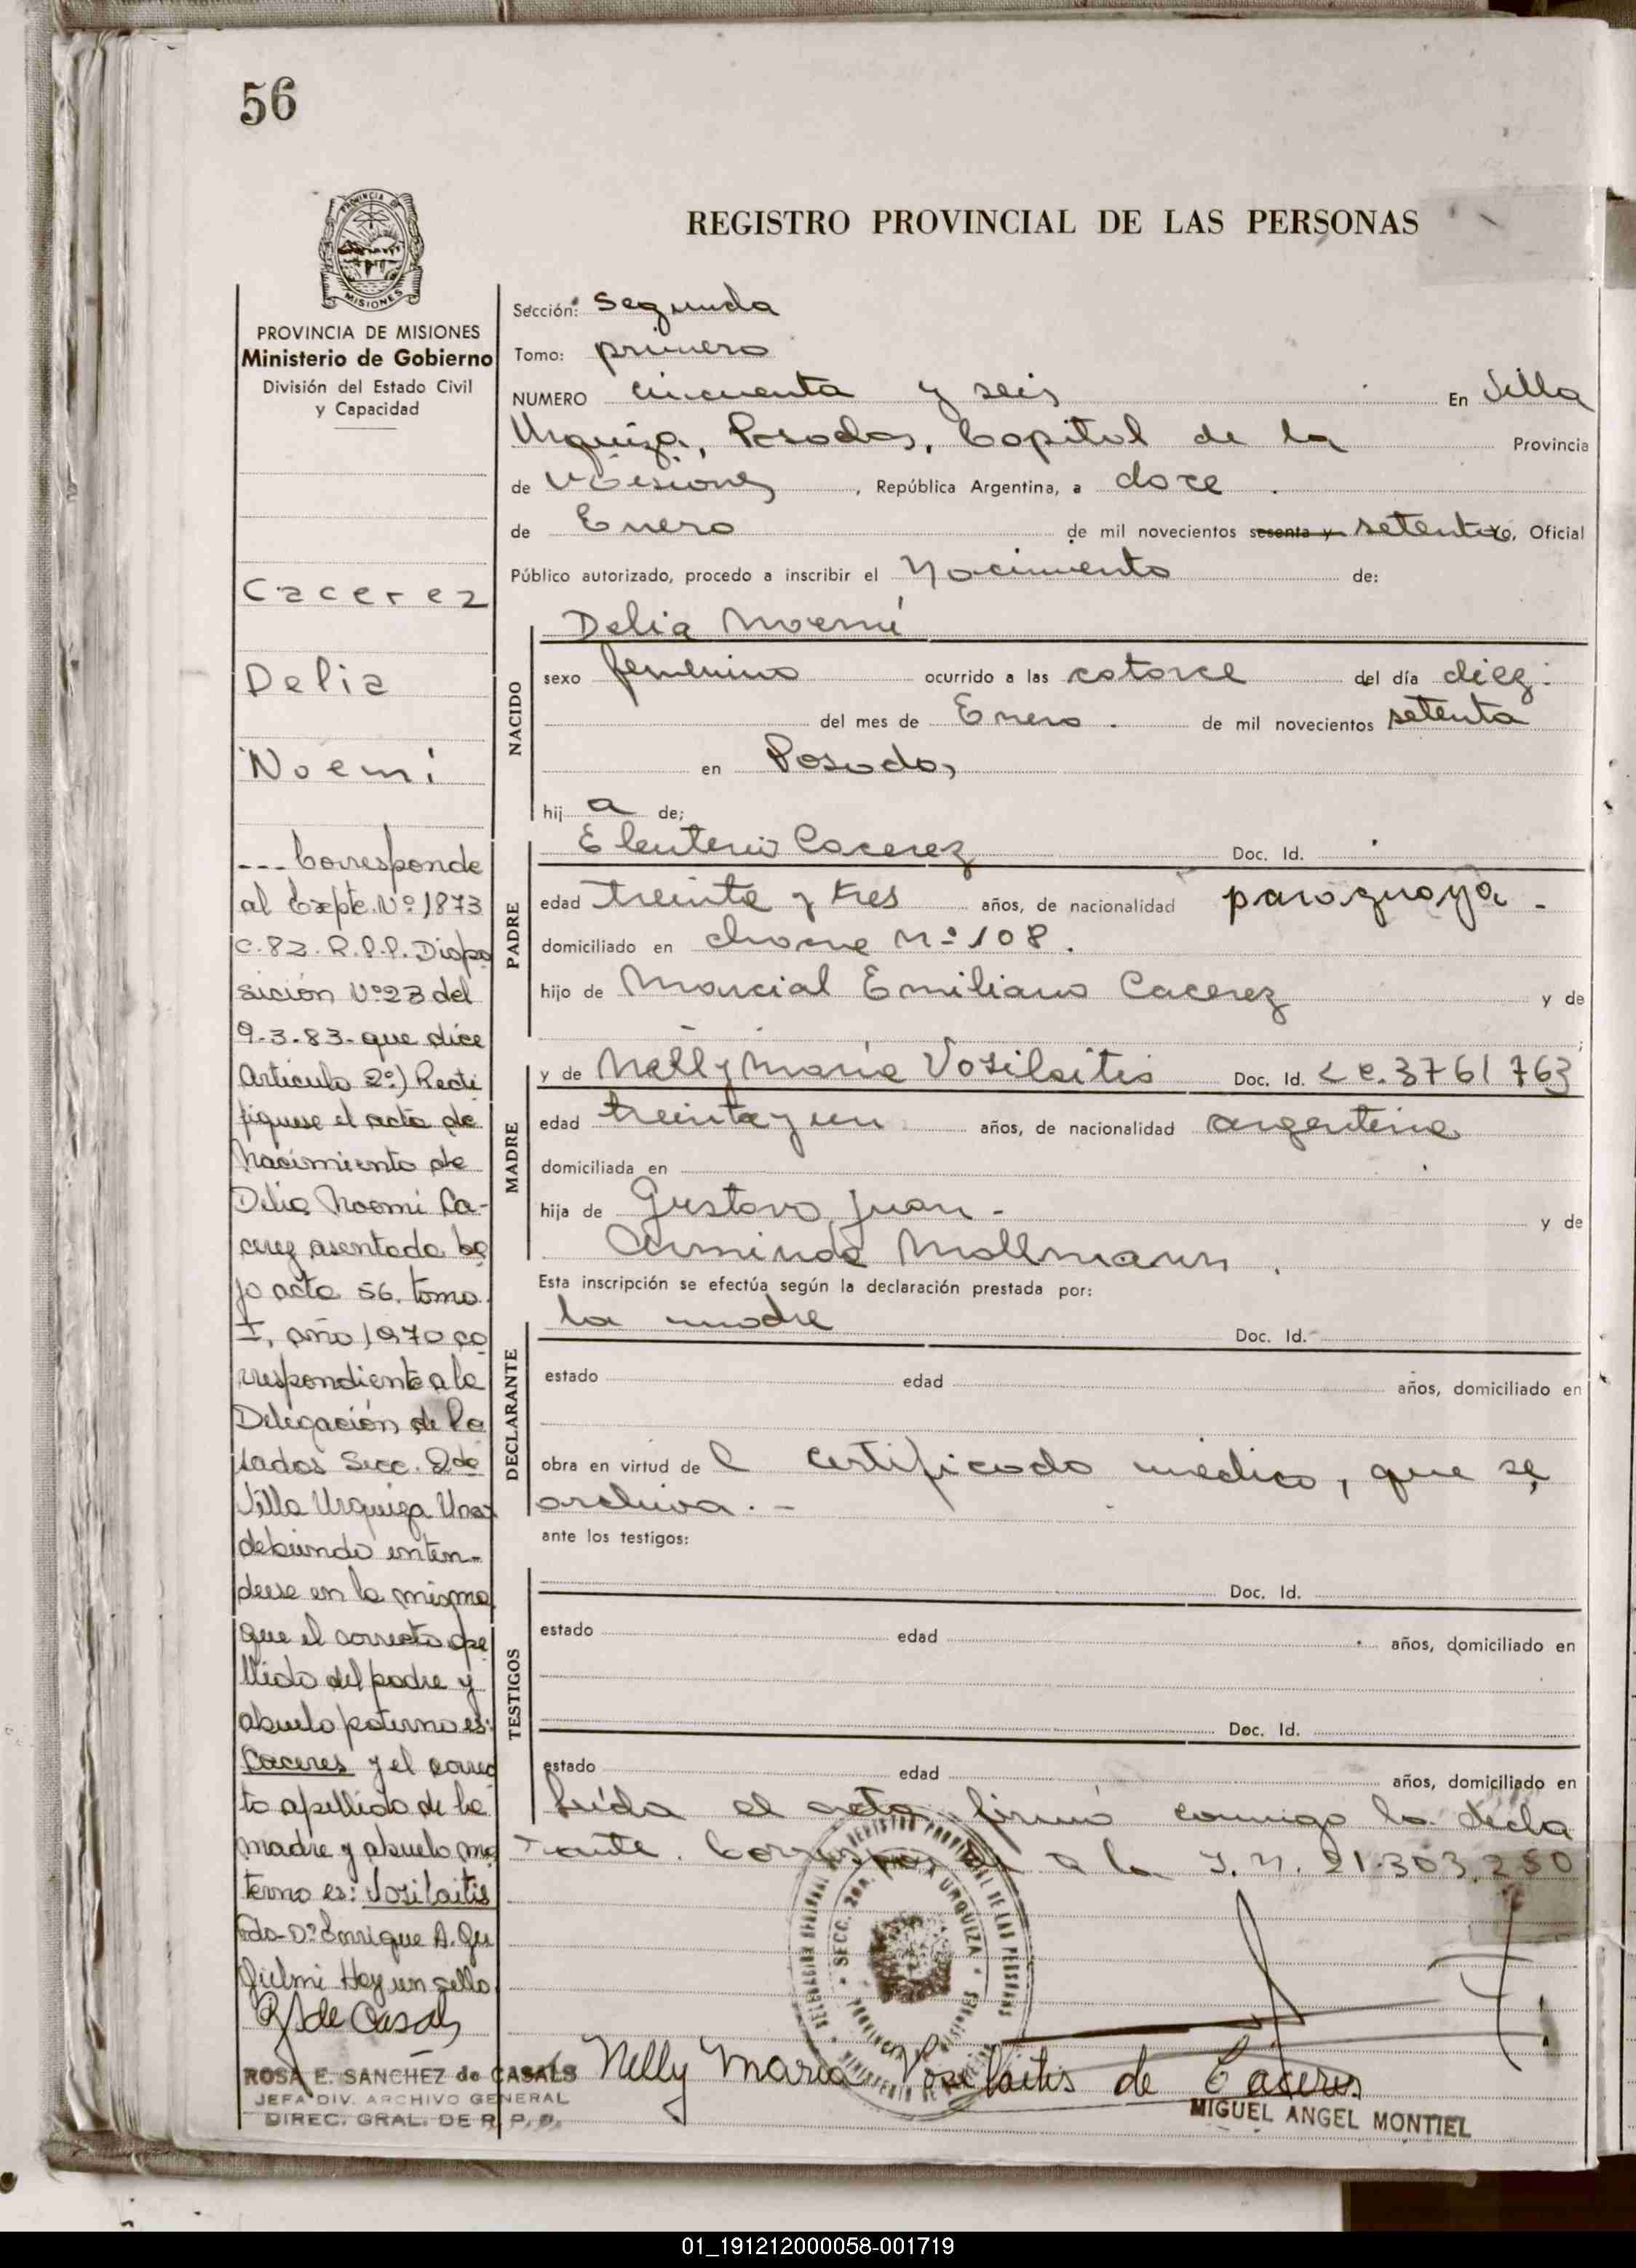 56
PROVINCIA DE
MISIONES
PROVINCIA DE MISIONES
Ministerio de Gobierno
División del Estado Civil
y Capacidad
Cacerez
Delia
Noemí
--- Corresponde
al Expte. Nº 1873
C. 82. R.P.P. Dispo
sición Nº 23 del
9.3.83. que dice
Artículo 2º) Recti
fiquese el acta de
Nacimiento de
Delia Noemi Ca-
cerez asentada ba
jo acta 56. tomo
I, año 1970 co
rrespondiente a la
Delegación de Po
sadas Secc. 2da
Villa Urquiza
debiendo enten-
derse en la misma
que el correcto ape
llido del padre y
abuelo paterno es:
Caceres y el correc
to apellido de la
madre y abuelo ma
terno es: Vosilaitis
Fdo. Dº Enrique A. Gu
Hay un sello
R. S. de Casals
ROSA E. SANCHEZ de CASALS
JEFA DIV. ARCHIVO GENERAL
DIREC. GRAL. DE R. P. P.
REGISTRO PROVINCIAL DE LAS PERSONAS
Sección: Segunda
Tomo: primero
NUMERO cincuenta y seis En Villa
Urquiza, Posadas, Capital de la Provincia
de Misiones, República Argentina, a doce
de Enero de mil novecientos sesenta y setenta yo, Oficial
Público autorizado, procedo a inscribir el Nacimiento de:
Delia Noemí
NACIDO
sexo femenino ocurrido a las catorce del día diez
del mes de Enero de mil novecientos setenta
en Posadas
hij a de;
PADRE
Eleuterio Cacerez Doc. Id.
edad treinta y tres años, de nacionalidad paraguaya -
domiciliado en chacra Nº 108.
hijo de Marcial Emiliano Cacerez y de
MADRE
y de Nelly María Vosilaitis Doc. Id. L C. 3761763
edad treinta y un años, de nacionalidad argentina
domiciliada en
hija de Gustavo Juan - y de
Arminda Mollmann.
Esta inscripción se efectúa según la declaración prestada por:
DECLARANTE
la madre Doc. Id.
estado edad años, domiciliado en
obra en virtud de l certificado médico, que se
archiva. -
ante los testigos:
TESTIGOS
Doc. Id.
estado edad años, domiciliado en
Doc. Id.
estado edad años, domiciliado en
Leída el acta, firmó conmigo la decla
rante. a la I.N. 21.303.250
SECC. 2DA. VILLA URQUIZA
PROVINCIA DE MISIONES
Nelly María Vosilaitis de Caceres
MIGUEL ANGEL MONTIEL
01_191212000058-001719